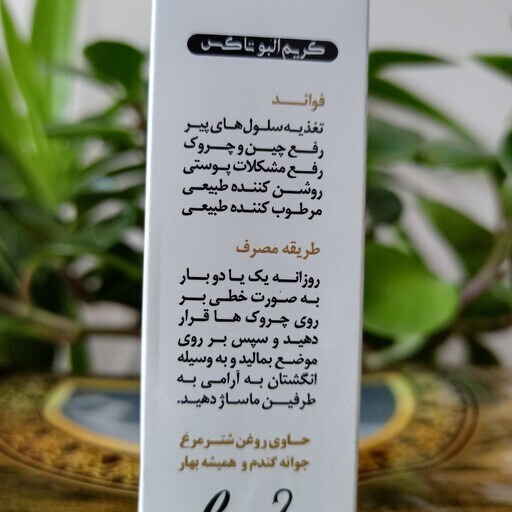 کریم البوتاکس
فوائد
تغذیه سلول های پیر
رفع چین و چروک
رفع مشکلات پوستی
روشن کننده طبیعی
مرطوب کننده طبیعی
طریقه مصرف
روزانه یک یا دو بار
به صورت خطی بر
روی چروک ها قرار
دهید و سپس بر روی
موضع بمالید و به وسیله
انگشتان به آرامی به
طرفین ماساژ دهید.
حاوی روغن شترمرغ
جوانه گندم و همیشه بهار